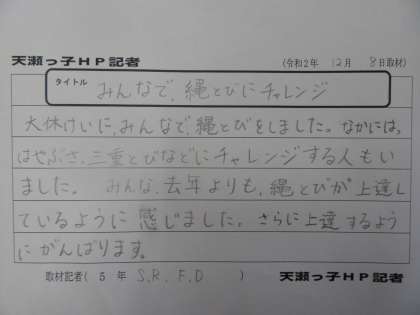 天瀬っ子HP記者
(令和2年 12月 8日取材)
タイトル
みんなで、縄とびにチャレンジ
大休けいに、みんなで、縄とびをしました。なかには、
はやぶさ、三重とびなどにチャレンジする人もい
ました。 みんな、去年よりも、縄とびが上達し
ているように感じました。さらに上達するよう
にがんばります。
取材記者( 5 年 S.R. F.D )
天瀬っ子HP記者